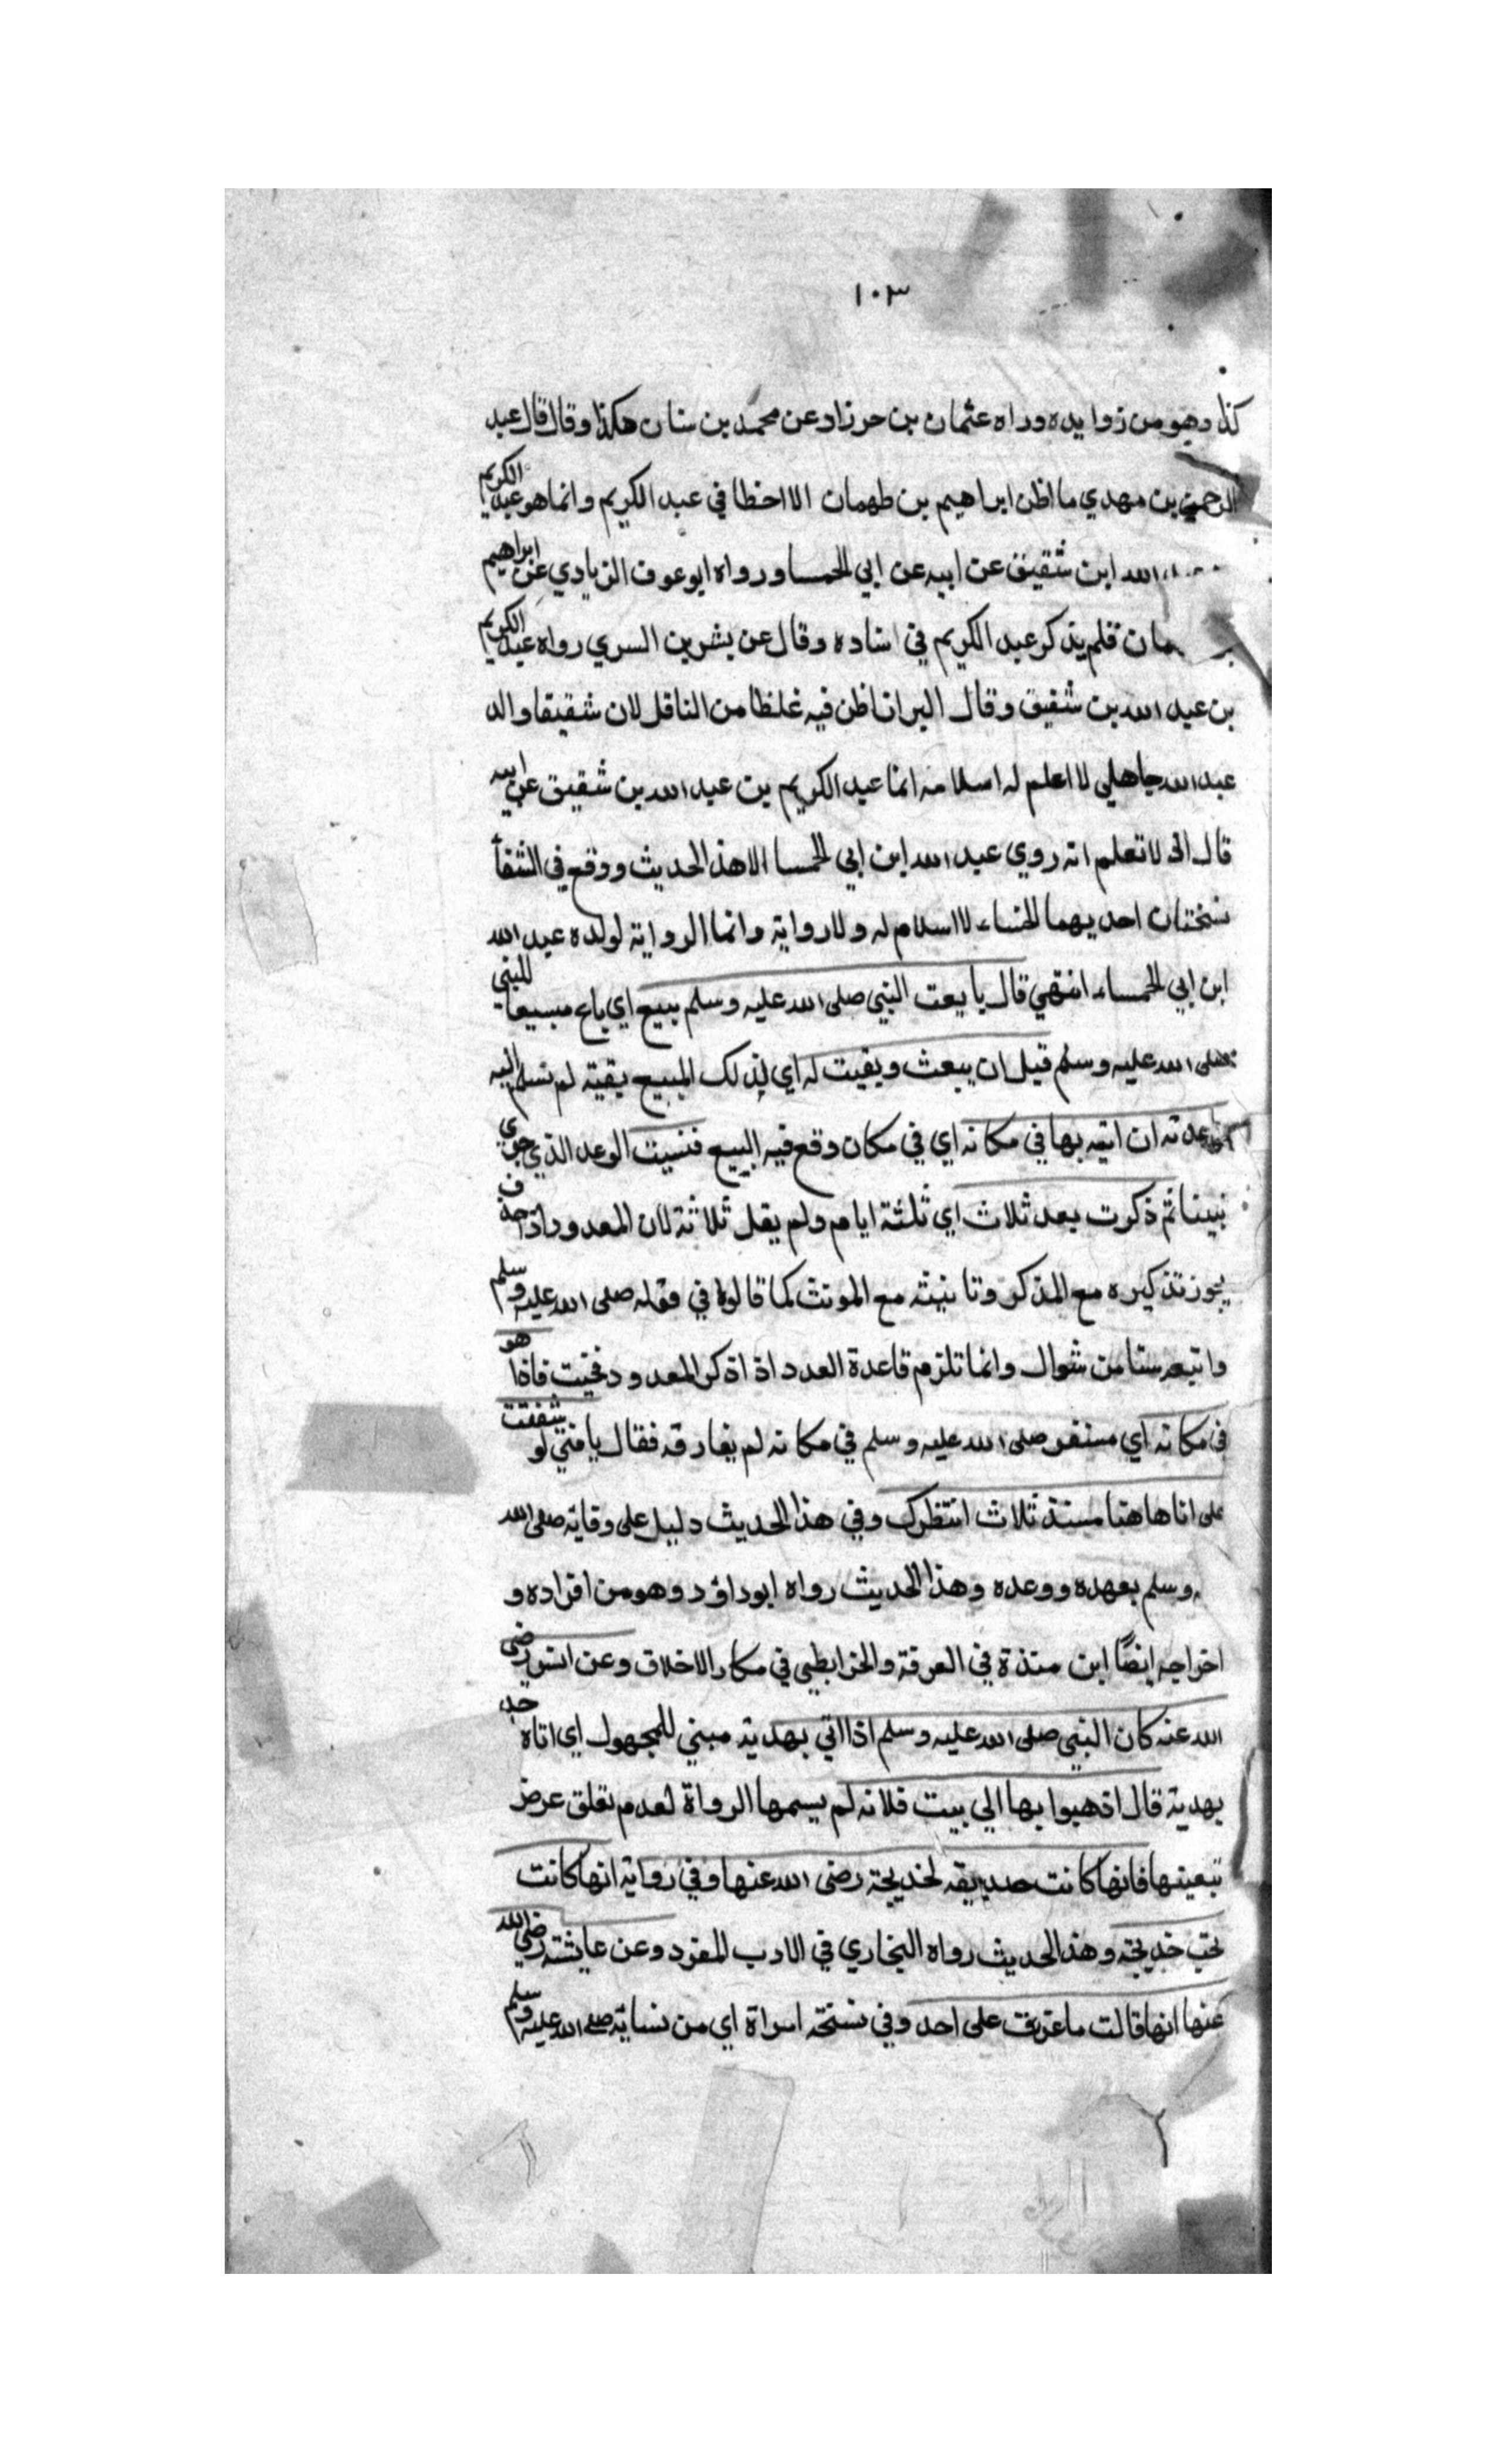 ١٠٣
كذا وهو من زوايده وراه عثمان بن حرزاد عن محمد بن سنان هكذا وقال قال عبد
الرحمن بن مهدي ما اظن ابراهيم بن طهمان الا اخطا في عبد الكريم وانما هو عبد الكريم
الله ابن شقيق عن ابيه عن ابي الحمسا ورواه ابو عوف الزيادي عن ابراهيم
مان فلم يذكر عبد الكريم في اسناده وقال عن بشر بن السري رواه عبد الكريم
بن عبد الله بن شقيق وقال البران اظن فيه غلظا من الناقل لان شقيقا والد
عبد الله جاهلي لا اعلم له اسلامه انما عبد الكريم بن عبد الله بن شقيق عن ابيه
قال الى لا تعلم انه روي عبد الله ابن ابي الحمسا الا هذ الحديث ووقع في الشفأ
نسختان احديهما الخنساء لا اسلام له ولا رواية وانما الرواية لولده عبد الله
ابن ابي الحمساء انتهي قال بايعت النبي صلى الله عليه وسلم ببيع اي باع مبيعا للنبي
صلى الله عليه وسلم قبل ان يبعث وبقيت له اي لذلك المبيع بقية لم تسلم اليه
فوعدته ان اتيه بها في مكانه اي في مكان وقع فيه البيع فنسيت الوعد الذي جري
بيننا ثم ذكرت بعد ثلاث اي ثلثة ايام ولم يقل ثلاثة لان المعدود اذا حذف
يجوز تذكيره مع المذكر وتانيثه مع المونث كما قالوا في قوله صلى الله عليه وسلم
واتبعه ستا من شوال وانما تلزم قاعدة العدد اذا ذكر المعدود فجئت فاذا هو
في مكانه اي مستقر صلى الله عليه وسلم في مكانه لم يفارقه فقال يا فتي لو شققت
على انا هاهنا منذ ثلاث انتظرك وفي هذا الحديث دليل على وفايه صلى الله
وسلم بعهده ووعده وهذا الحديث رواه ابو داؤد وهو من افراده و
اخراجه ايضًا ابن منذة في العرفة والخرابطي في مكار الاخلاق وعن انس رضى
الله عنه كان النبي صلى الله عليه وسلم اذا اتي بهدية مبني للمجهول اي اتاه احد
بهدية قال اذهبوا بها الي بيت فلانه لم يسمها الرواة لعدم تعلق عرض
بتعينها فانها كانت صديقه لخديجة رضى الله عنها وفي رواية انها كانت
تحب خديجة وهذ الحديث رواه البخاري في الادب المفرد وعن عايشة رضي الله
عنها انها قالت ما غرت على احد وفي نسخة امراة اي من نسايه صلى الله عليه وسلم